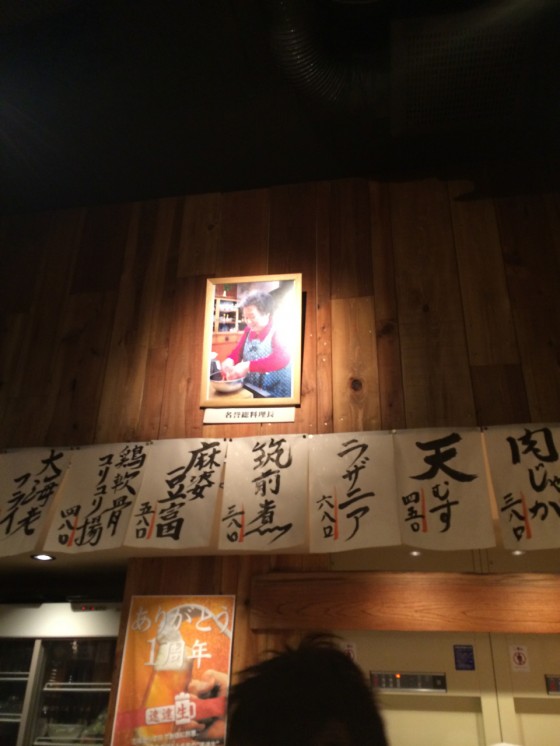 名誉総料理長
肉じゃが
三八〇
天むす
四五〇
ラザニア
六八〇
筑前煮
三八〇
麻婆豆富
五八〇
鶏軟骨
コリコリ揚
四八〇
大海老
フライ
ありがとう
1周年
達達生